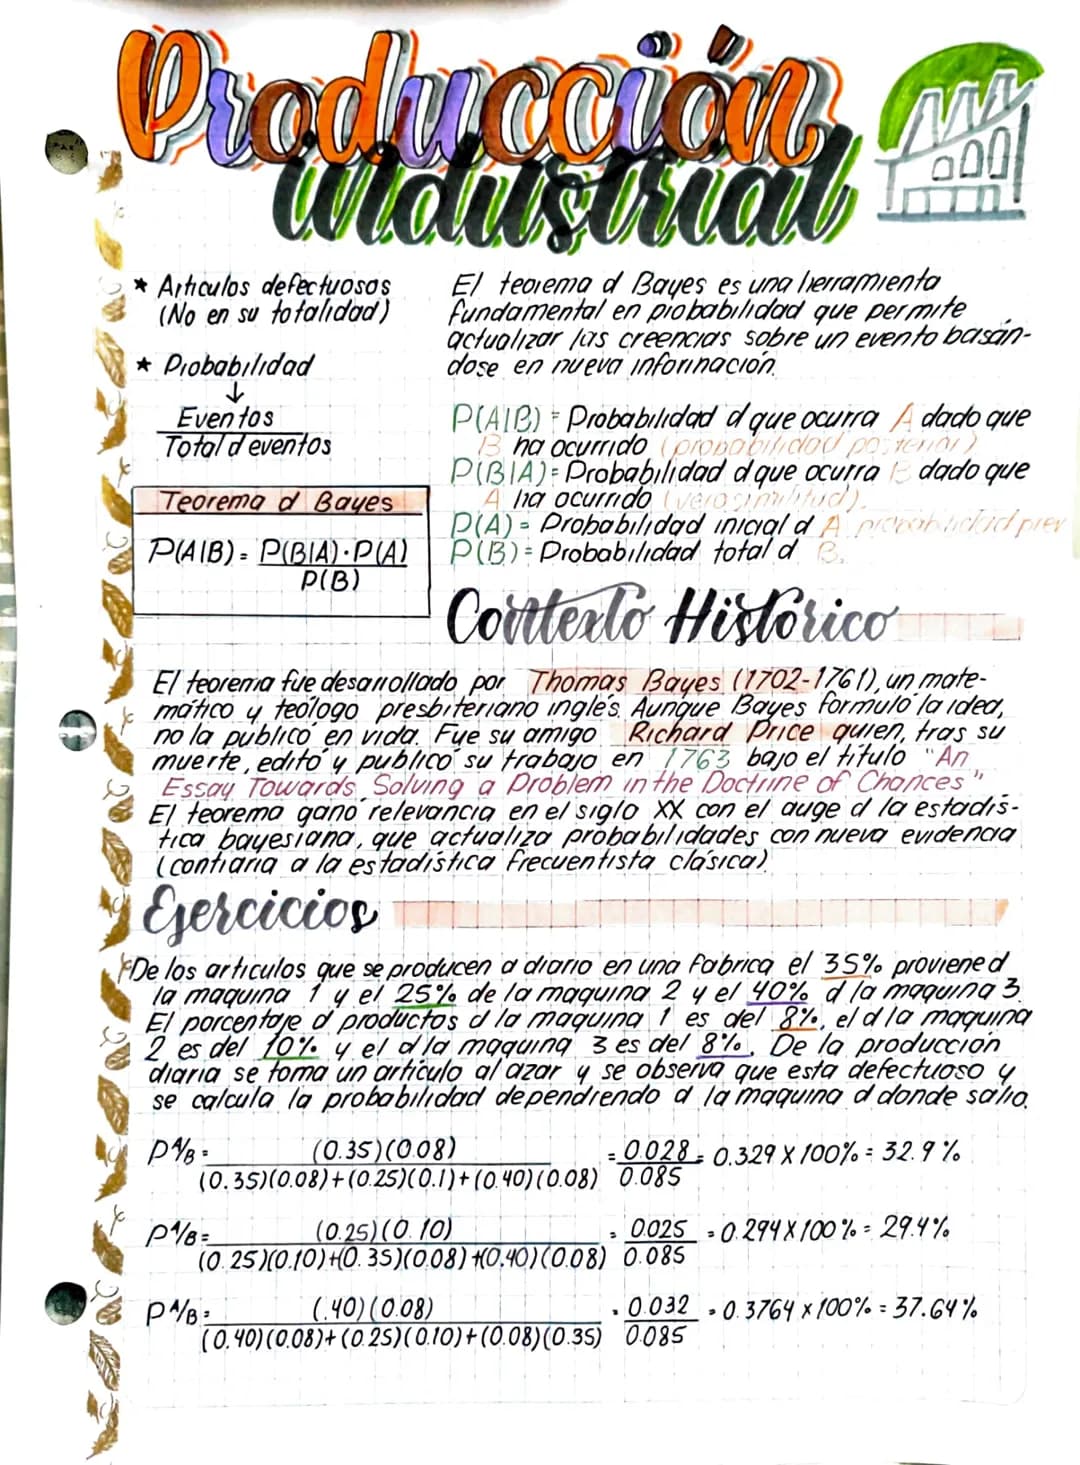 Producción
industrial
* Articulos defectuosos
(No en su totalidad)
* Probabilidad
↓
Eventos
Total d eventos
Teorema d Bayes
P(A|B) = P(B|A) · P(A)
P(B)
El teorema d Bayes es una herramienta
fundamental en probabilidad que permite
actualizar las creencias sobre un evento basán-
dose en nueva información.
P(A|B) = Probabilidad d que ocurra A dado que
B ha ocurrido (probabilidad posterior)
P(B|A) = Probabilidad d que ocurra B dado que
A ha ocurrido (verosimilitud).
P(A) = Probabilidad inicial d A probabilidad prev
P(B) = Probabilidad total d B.
Contexto Histórico
El teorema fue desarrollado por Thomas Bayes (1702-1761), un mate-
mático y teólogo presbiteriano inglés. Aunque Bayes formuló la idea,
no la publicó en vida. Fue su amigo Richard Price quien, tras su
muerte, editó y publicó su trabajo en 1763 bajo el título "An
Essay Towards Solving a Problem in the Doctrine of Chances"
El teorema ganó relevancia en el siglo XX con el auge d la estadís-
tica bayesiana, que actualiza probabilidades con nueva evidencia
(contraria a la estadística frecuentista clásica)
Ejercicios
De los articulos que se producen a diario en una fabrica el 35% proviene d
la maquina 1 y el 25% de la maquina 2 y el 40% d la maquina 3.
El porcentaje d productos d la maquina 1 es del 8%, el d la maquina
2 es del 10% y el d la maquina 3 es del 8%. De la producción
diaria se toma un articulo al azar y se observa que esta defectuoso y
se calcula la probabilidad dependrendo d la maquina d donde salio.
P A/B = (0.35)(0.08) = 0.028 = 0.329 X 100% = 32.9%
(0.35)(0.08)+(0.25)(0.1)+(0.40)(0.08) 0.085
P A/B = (0.25)(0.10) = 0.025 = 0.294 X 100% = 29.4%
(0.25)(0.10)+(0.35)(0.08)+(0.40)(0.08) 0.085
P A/B = (.40)(0.08) = 0.032 = 0.3764 x 100% = 37.64%
(0.40)(0.08)+(0.25)(0.10)+(0.08)(0.35) 0.085